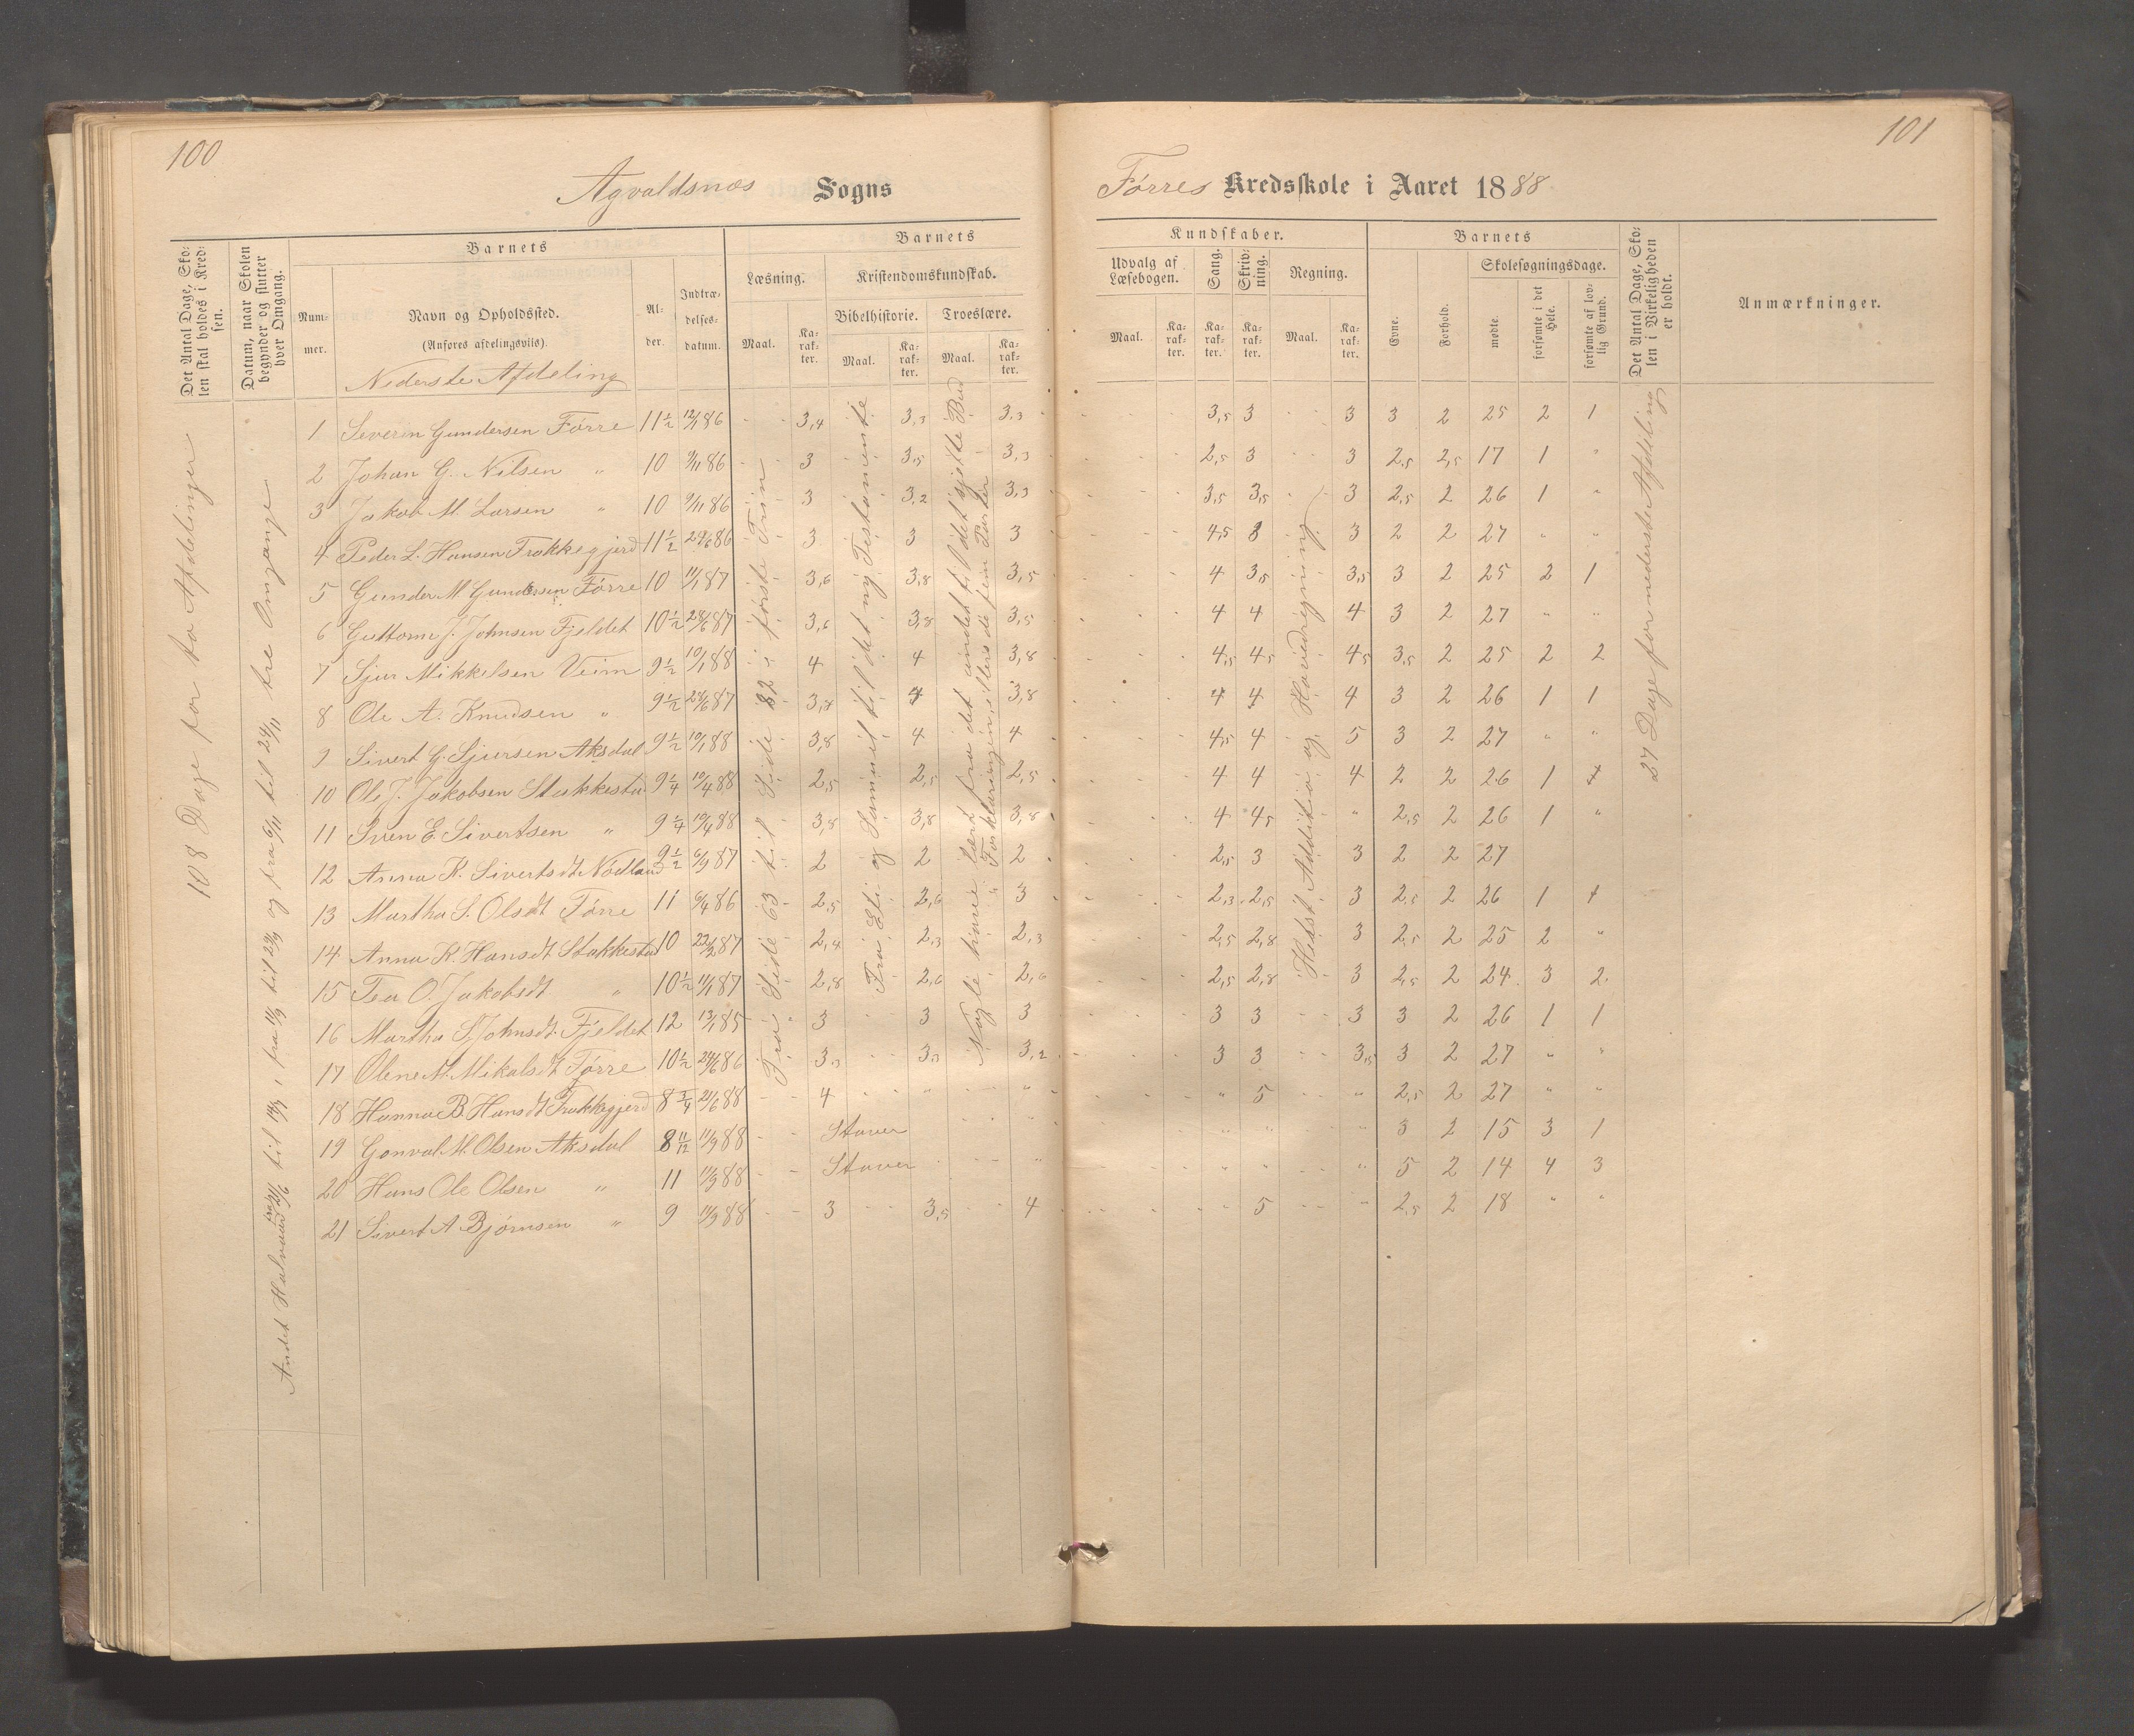 100
101
Agvaldsnæs Sogns
Førres Kredsskole i Aaret 1888
Det Antal Dage, Sko-
len skal holdes i Kred-
sen.
Datum, naar Skolen
begynder og slutter
hver Omgang.
Barnets
Num-
mer.
Navn og Opholdssted.
(Anføres afdelingsvils).
Nederste Afdeling
Al-
der.
Indtræ-
delses-
datum.
Barnets
Læsning.
Maal.
Ka-
rak-
ter.
Kristendomskundskab.
Bibelhistorie.
Troeslære.
Maal.
Ka-
rak-
ter.
Maal.
Ka-
rak-
ter.
Kundskaber.
Udvalg af
Læsebogen.
Maal.
Ka-
rak-
ter.
Sang.
Ka-
rak-
ter.
Skriv-
ning.
Ka-
rak-
ter.
Regning.
Maal.
Ka-
rak-
ter.
Barnets
Evne.
Forhold.
Skolesøgningsdage.
mødte.
forsømte i det
Hele.
forsømte af lov-
lig Grund.
Det Antal Dage, Sko-
len i Virkeligheden
er holdt.
Anmærkninger.
108 Dage for to Afdelinger
fra 21/6 til 14/7, fra 11/9 til 29/9 og fra 6/11 til 24/11 tre Omgange
Andet Halvaar
Fra Side 63 til Side 82 i første Trin
Fra Eli og Samuel til det ny Testamente
Nogle have lært fra det andet til det sjette Bud
" Forklaringen, ellers de fem Parter
Hedst Addition og Hovedregning
27 Dage for nederste Afdeling
1 Severin Gundersen Førre 11 1/2 12/1 86 3,4 3,3 3,3 3,5 3 3 3 2 25 2 1
2 Johan G. Nilsen " 10 9/11 86 3 3,5 3,3 2,5 3 3 2,5 2,5 17 1 "
3 Jakob M. Larsen " 10 9/11 86 3 3,2 3,3 3,5 3,5 3 2,5 2 26 1 "
4 Peder L. Hansen Frakkegjerd 11 1/2 24/6 86 3 3 3 4,5 3 3 2 2 27 " "
5 Gunder M Gundersen Førre 10 11/1 87 3,6 3,8 3,5 4 3,5 3,5 3 2 25 2 1
6 Guttorm J. Johnsen Fjeldet 10 1/2 28/6 87 3,6 3,8 3,5 4 4 4 3 2 27 " "
7 Sjur Mikkelsen Veim 9 1/2 10/1 88 4 4 3,8 4,5 4,5 4,5 3,5 2 25 2 2
8 Ole A. Knudsen " 9 1/2 28/6 87 3,8 4 3,8 4 4 4 3 2 26 1 1
9 Sivert G. Sjursen Aksdal 9 1/2 10/1 88 3,8 4 4 4,5 4 5 3 2 27 " "
10 Ole J. Jakobsen Stakkesta 9 1/4 19/4 88 2,5 2,5 2,5 4 4 4 2 2 26 1
11 Sven E Sivertsen " 9 1/4 19/4 88 3,8 3,8 3,8 4 4,5 " 2,5 2 26 1 "
12 Anna K. Sivertsdt Nødland 9 1/2 6/9 87 2 2 2 2,5 3 3 2 2 27
13 Martha S. Olsdt Førre 11 9/4 86 2,5 2,6 3 2,3 2,5 3 2,5 2 26 1
14 Anna K. Hansdt Stakkestad 10 22/2 87 2,4 2,3 2,3 2,5 2,8 3 2,5 2 25 2 "
15 Tea O. Jakobsdt " 10 1/2 11/1 87 2,8 2,6 2,6 2,5 2,8 3 2,5 2 24 3 2
16 Martha S Johnsdt. Fjeldet 12 13/1 85 3 3 3 3 3 3 3 2 26 1 1
17 Olene M. Mikalsdt Førre 10 1/2 24/6 86 3,3 3,3 3,2 3 3 3,5 3 2 27 " "
18 Hanna B. Hansdt Frakkegjerd 8 3/4 21/6 88 4 " " " 5 " 2,5 2 27 " "
19 Gonval M. Olsen Aksdal 8 11/12 11/9 88 Staver 3 2 15 3 1
20 Hans Ole Olsen " 11 11/9 88 Staver 5 2 14 4 3
21 Sivert A Bjørnsen " 9 11/9 88 3 3,5 4 5 2,5 2 18 " "